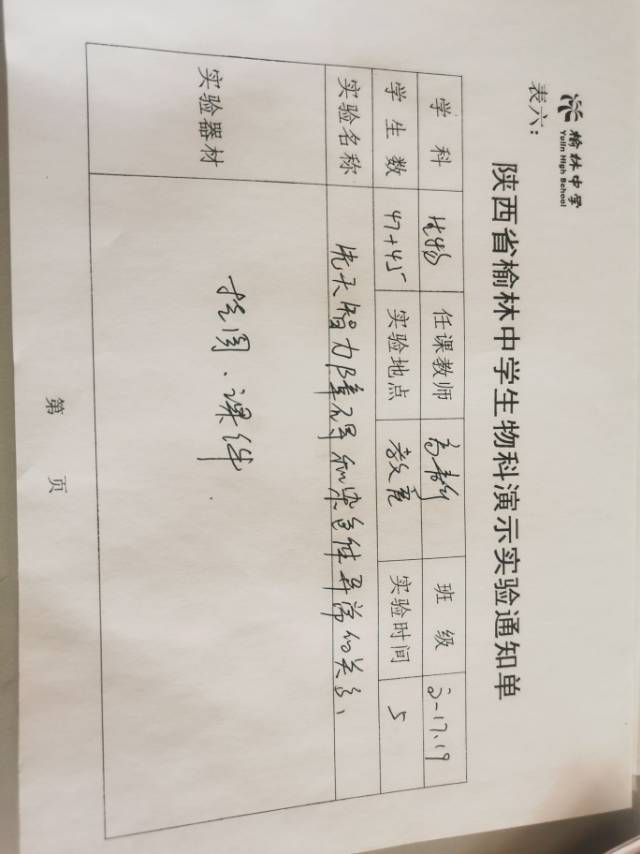 榆林中学
Yulin High School
表六:
陕西省榆林中学生物科演示实验通知单
学科 生物 任课教师 高 班级 2-17.19
学生数 47+45 实验地点 教室 实验时间 5
实验名称 先天智力障碍和染色体异常的关系、
实验器材 挂图、课件
第 页